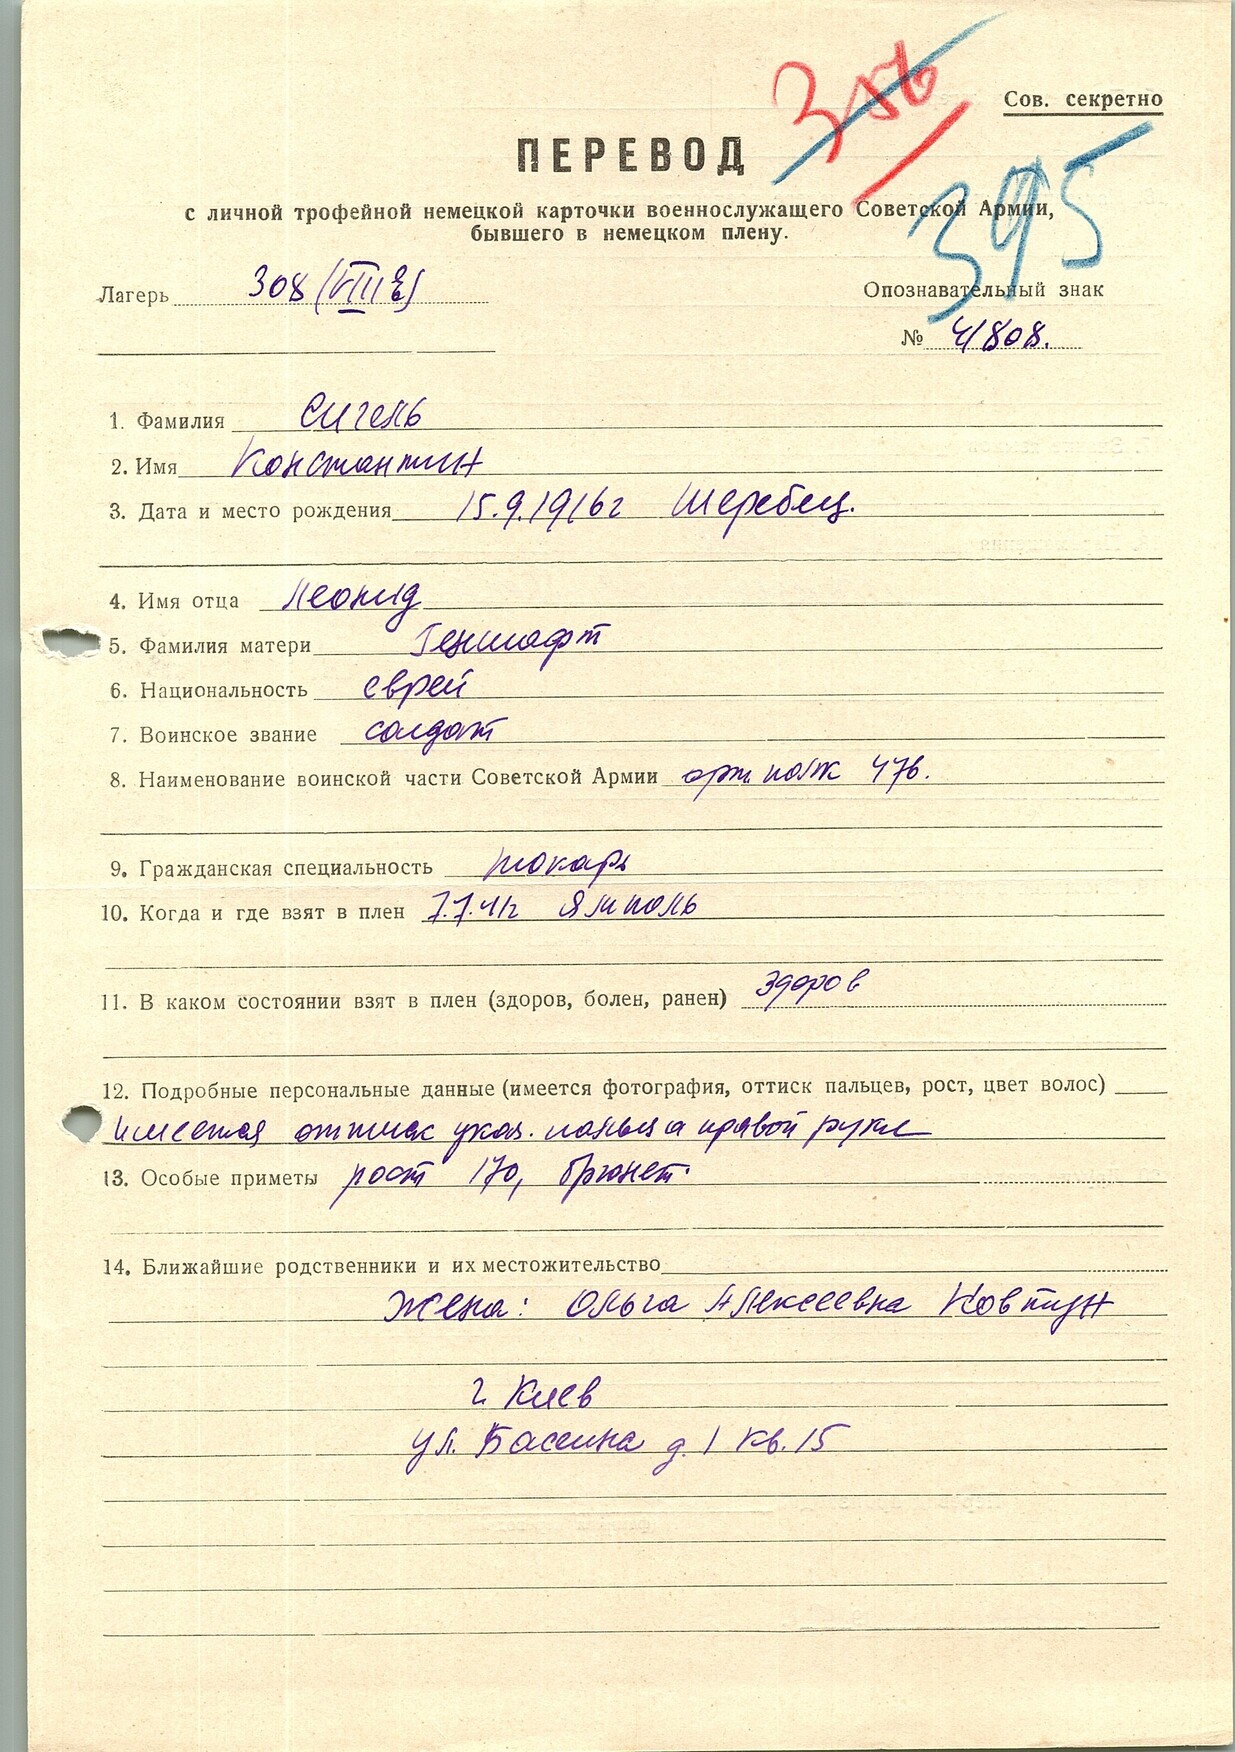 356
Сов. секретно
395
ПЕРЕВОД
с личной трофейной немецкой карточки военнослужащего Советской Армии,
бывшего в немецком плену.
Лагерь 308 (VIII E)
Опознавательный знак
№ 41808.
1. Фамилия Сигель
2. Имя Константин
3. Дата и место рождения 15.9.1916г Шеребец.
4. Имя отца Леонид
5. Фамилия матери Геншафт
6. Национальность еврей
7. Воинское звание солдат
8. Наименование воинской части Советской Армии арт. полк 476.
9. Гражданская специальность токарь
10. Когда и где взят в плен 7.7.41г Ямполь
11. В каком состоянии взят в плен (здоров, болен, ранен) здоров
12. Подробные персональные данные (имеется фотография, оттиск пальцев, рост, цвет волос)
имеется оттиск указ. пальца правой руки
13. Особые приметы рост 170, брюнет.
14. Ближайшие родственники и их местожительство
Жена: Ольга Алексеевна Ковтун
г. Киев
ул. Бассина д. 1 кв. 15